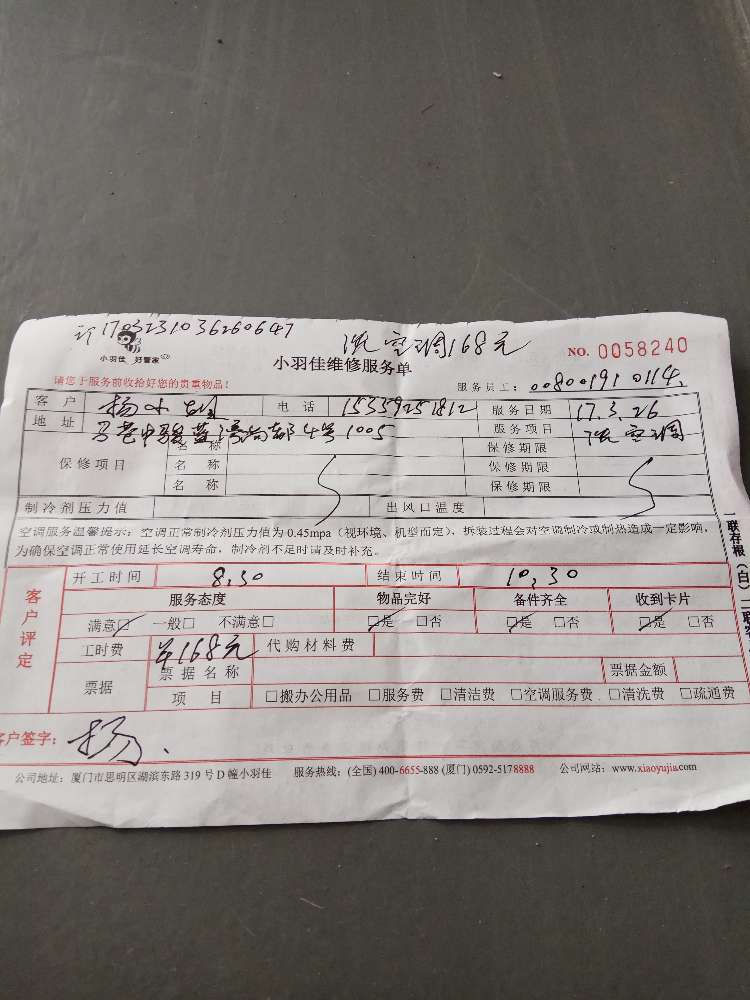 订1703231036260647
洗空调168元
小羽佳 好管家
小羽佳维修服务单
NO. 0058240
请您于服务前收拾好您的贵重物品!
服务员工: 00800191 0114
客户 杨小 电话 15359251812 服务日期 17.3.26
地址 马巷中骏蓝湾尚都4号1005 服务项目 洗空调
保修项目
名称 保修期限
名称 保修期限
名称 保修期限
制冷剂压力值 出风口温度
空调服务温馨提示:空调正常制冷剂压力值为0.45mpa(视环境、机型而定),拆装过程会对空调制冷或制热造成一定影响,
为确保空调正常使用延长空调寿命,制冷剂不足时请及时补充。
一联存根(白)二联客
客户评定
开工时间 8.30 结束时间 10.30
服务态度 物品完好 备件齐全 收到卡片
满意□ 一般□ 不满意□ □是 □否 □是 □否 □是 □否
工时费 ¥168元 代购材料费
票据 票据名称 票据金额
项目 □搬办公用品 □服务费 □清洁费 □空调服务费 □清洗费 □疏通费
客户签字: 杨
公司地址:厦门市思明区湖滨东路319号D幢小羽佳 服务热线:(全国)400-6655-888 (厦门)0592-5178888 公司网站:www.xiaoyujia.com